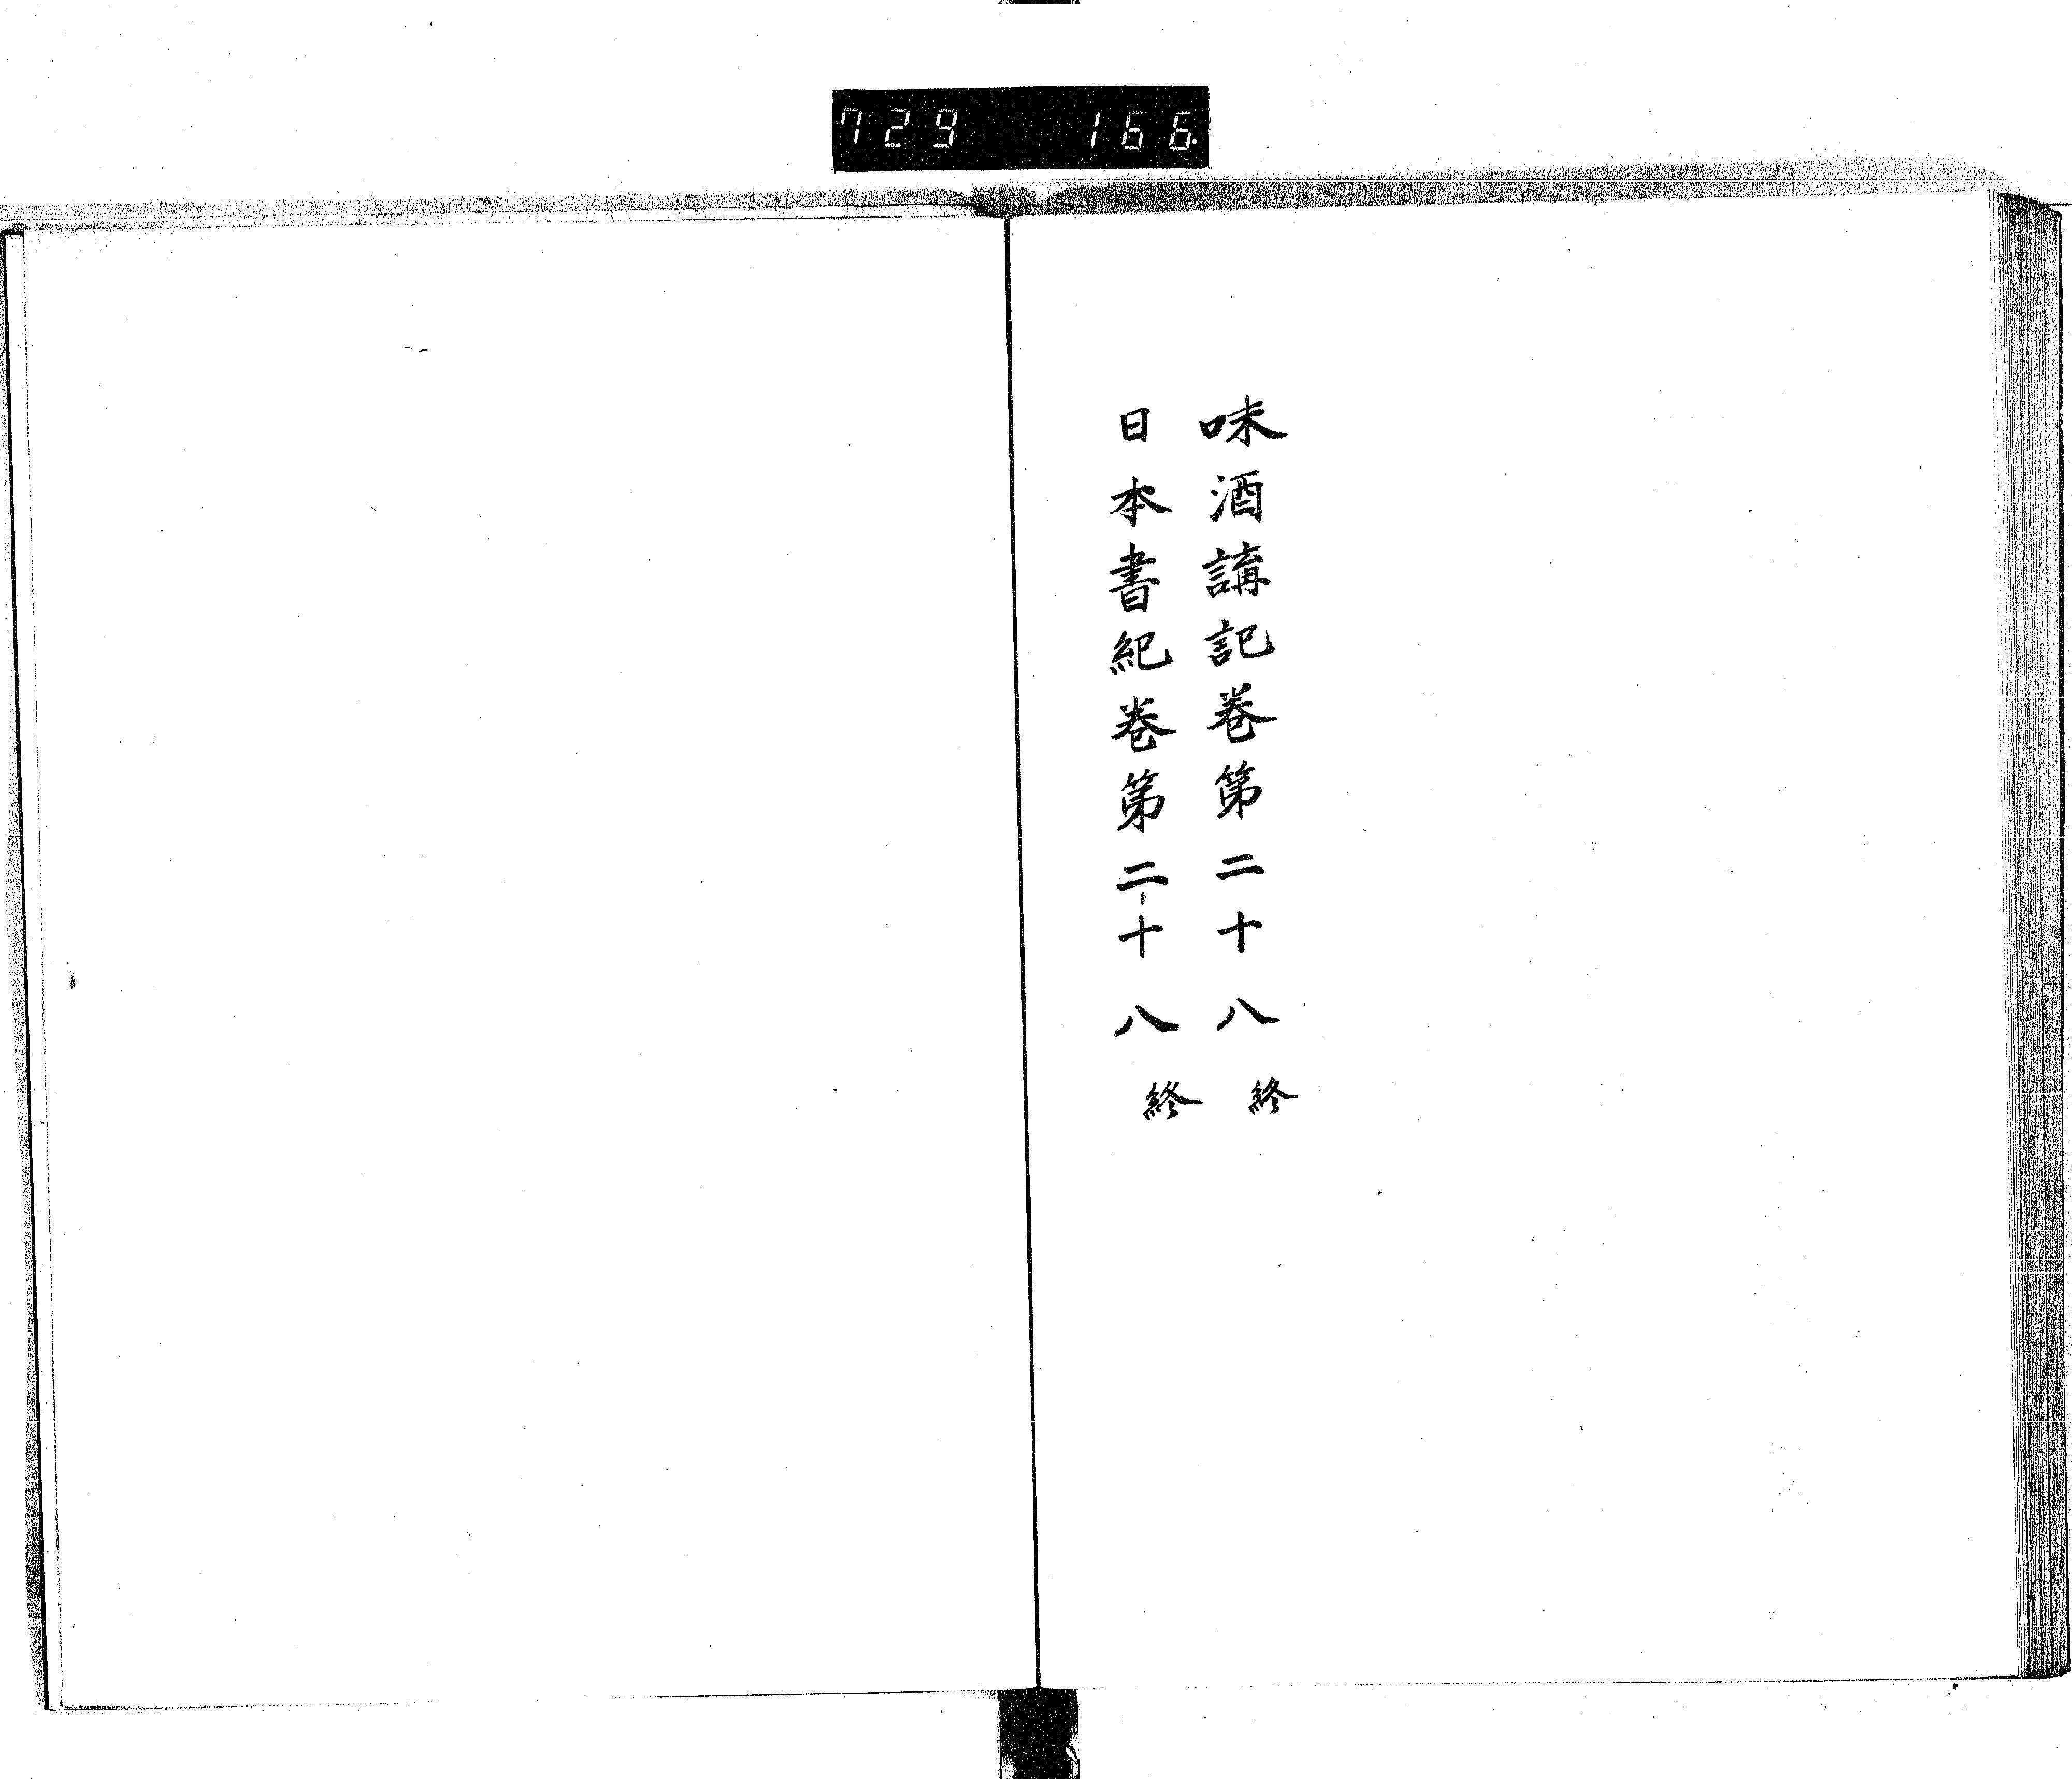 729 166
味酒講記卷第二十八終
日本書紀卷第二十八終